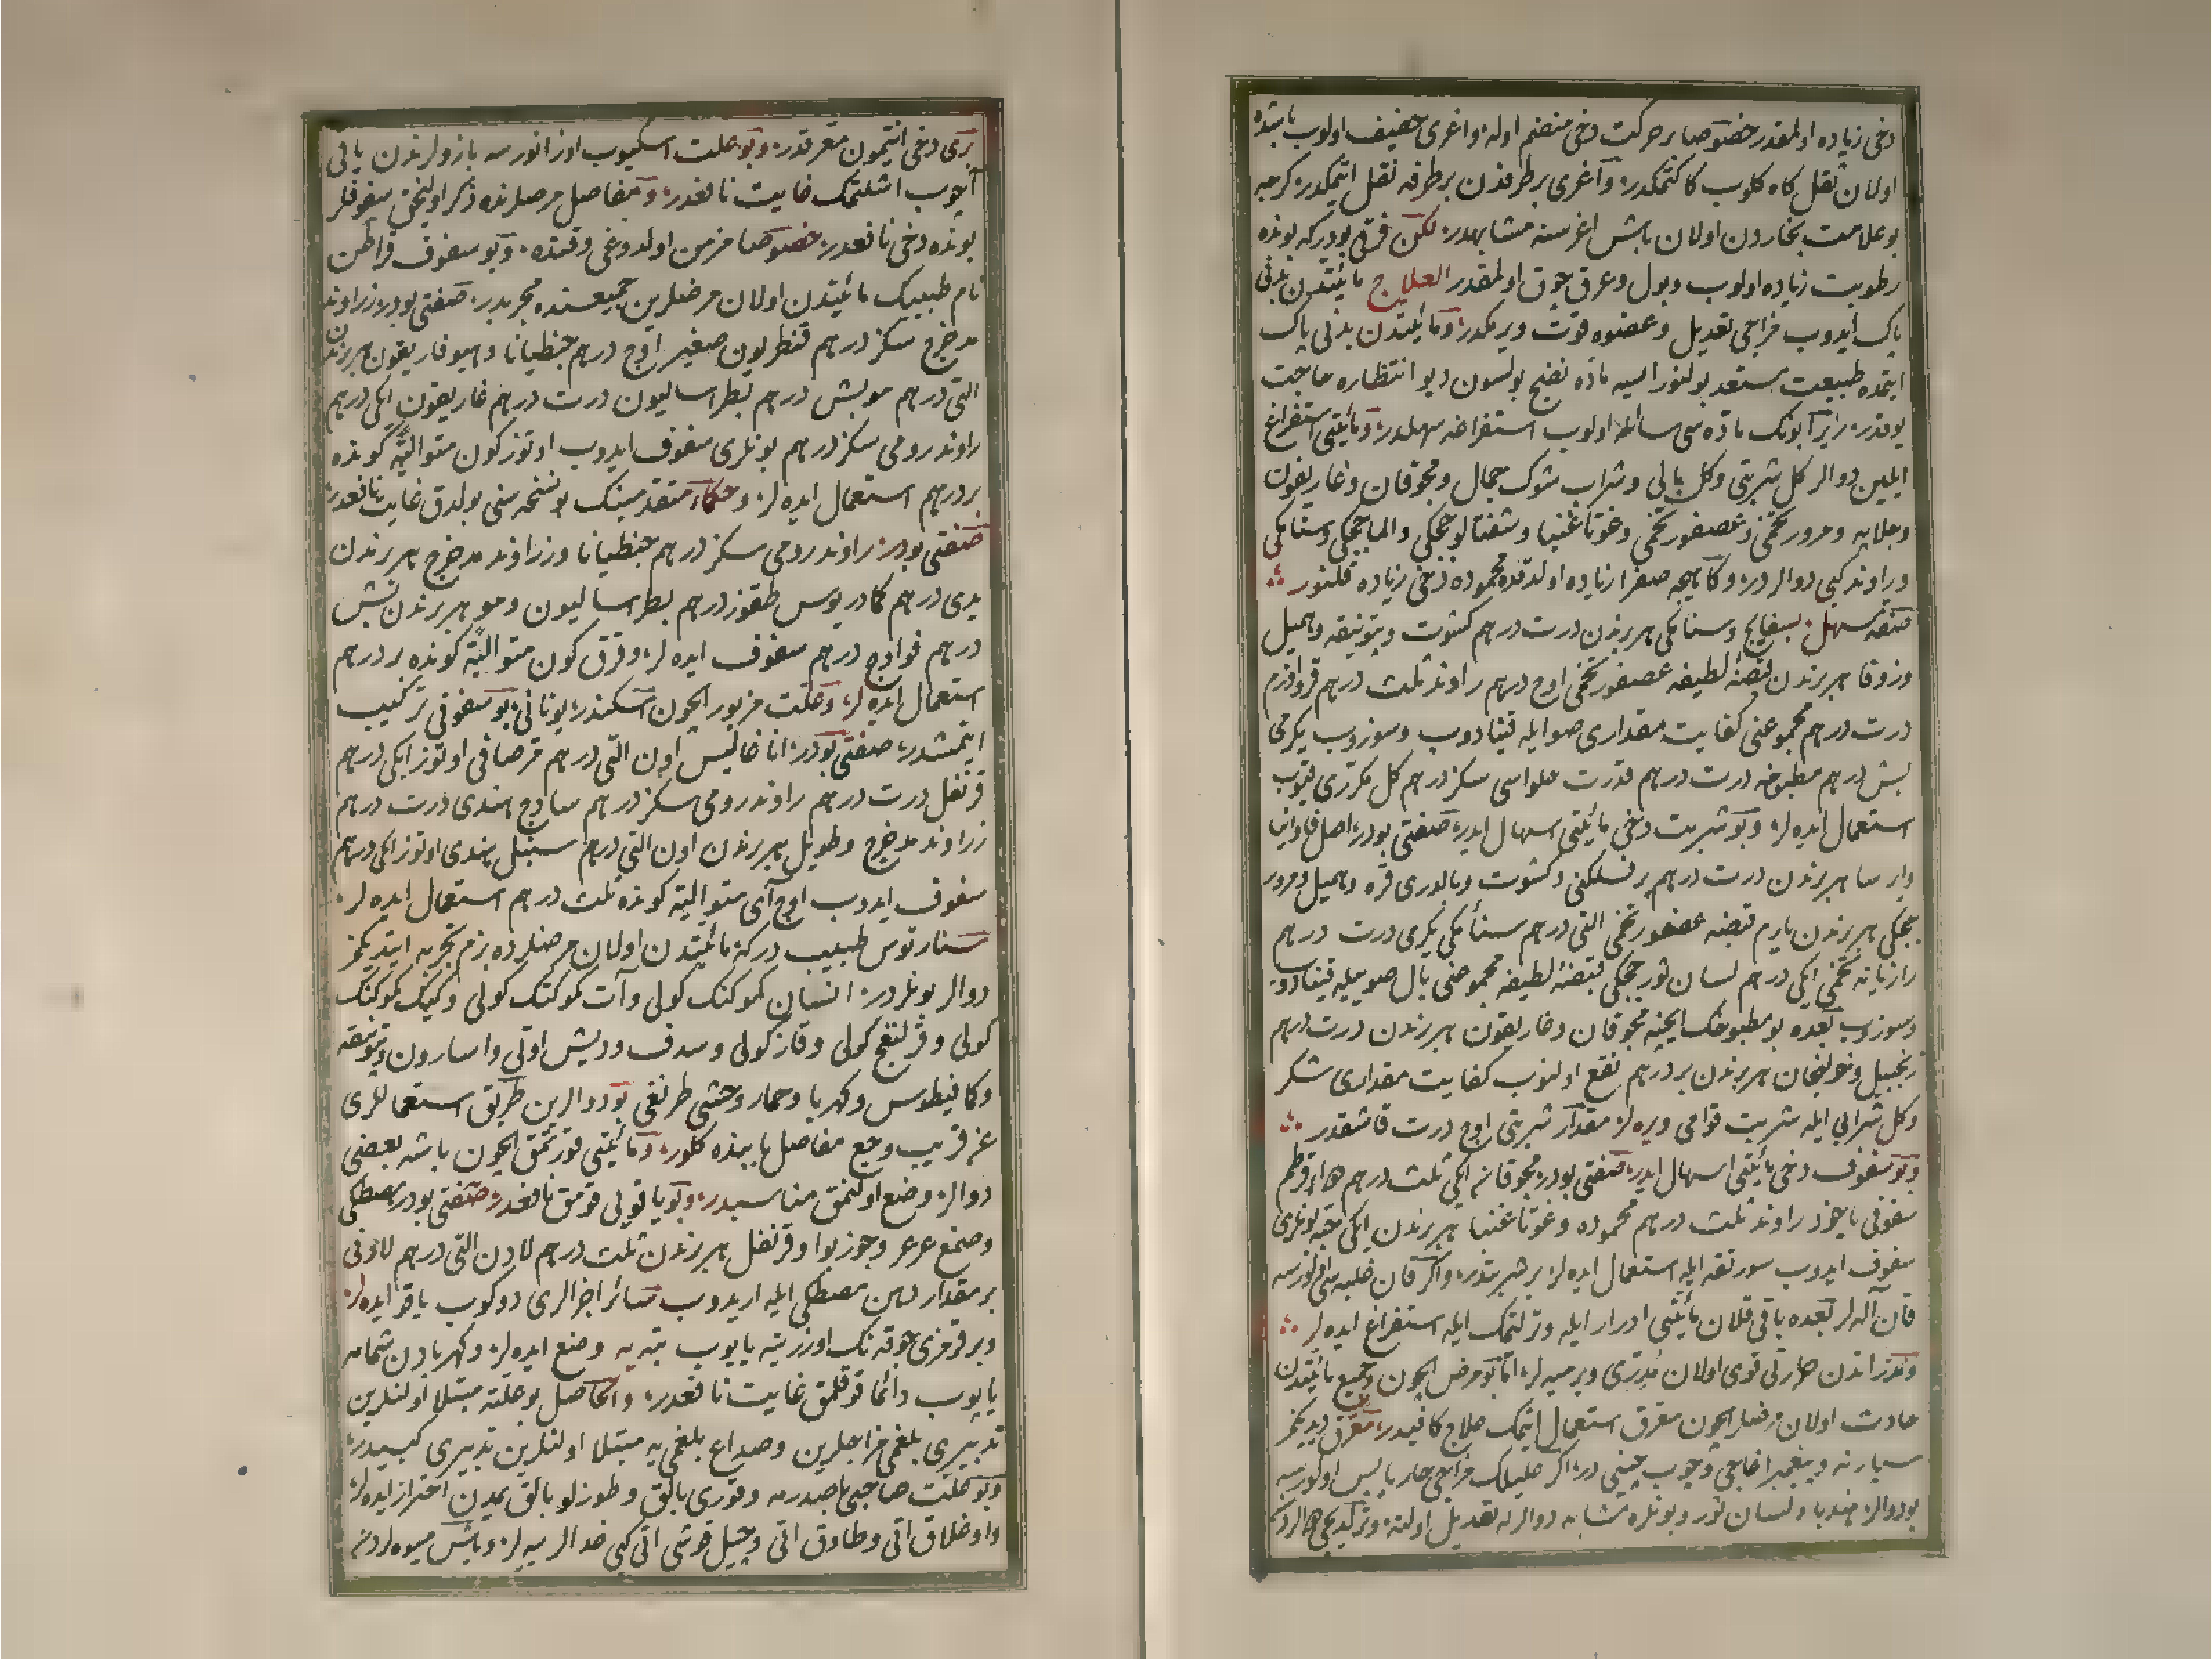 دخی زیاده اولمقدر خصوصا برحرکت دخی منضم اوله و اغری خفیف اولوب باشده
اولان ثقل کاه کلوب کاه کتمکدر وآغری برطرفدن برطرفه نقل ایتمکدر کرچه
بو علامت بخاردن اولان باش اغرسنه مشابهدر لکن فرقی بودرکه بونده
رطوبت زیاده اولوب وبول وعرق چوق اولمقدر العلاج مائیتدن بدنی
پاک ایدوب مزاجی تعدیل وعضوه قوت ویرمکدر ومائیتدن بدنی پاک
ایتمده طبیعت مستعد بولنور ایسه ماده نضج بولسون دیو انتظاره حاجت
یوقدر زیرا بونک ماده سی سائله اولوب استفراغه سهلدر ومائیتی استفراغ
ایلین دوالر کل شربتی وکل بالی وشراب شوک جمال ومجوقان وغاریقون
وجلاپه وحرور تخمی وعصفور تخمی وغوتاغنبا وشفتالو چچکی والما چچکی وسنامکی
وراوند کبی دوالردر وکآهیجه صفرا زیاده اولدقده محموده دخی زیاده قلنور
صفة مسهل بسفایج وسنامکی هربرندن درت درهم کشوت وبتونیقه وهمیل
وزوفا هربرندن قبضۀ لطیفه عصفور تخمی اوچ درهم راوند ثلث درهم
درت درهم مجموعنی کفایت مقداری صو ایله قینادوب وسوزوب یکرمی
بش درهم مطبوخه درت درهم قدرت حلواسی سکز درهم کل مکرری قیوب
استعمال ایده لر وبو شربت دخی مائیتی اسهال ایدر صفتی بودر اصل
وایرسا هربرندن درت درهم وکشوت وبالدری قره وهمیل
چچکی هربرندن یارم قبضه عصفور تخمی التی درهم سنامکی یکرمی درت درهم
رازیانه تخمی ایکی درهم لسان ثور چچکی قبضۀ لطیفه مجموعنی بال صوییله قینادوب
وسوزوب بعده بو مطبوخک ایچنه مجوقان وغاریقون هربرندن درت درهم
زنجبیل وخولنجان هربرندن بر درهم نقع اولنوب کفایت مقداری شکر
وکل شرابی ایله شربت قوامی ویره لر مقدار شربتی اوچ درت قاشقدر
وبو سفوف دخی مائیتی اسهال ایدر صفتی بودر مجوقانه ایکی ثلث درهم
سفوفی یاخود راوند ثلث درهم محموده وغوتاغنبا هربرندن ایکی حبه بونلری
سفوف ایدوب سورتقه ایله استعمال ایده لر واکر قان غلبه سی اولنورسه
قان آله لر بعده باقی قلان مائیتی ادرار ایله وترلتمک ایله استفراغ ایده لر
ومدراتدن حرارتی قوی اولان مدرری ویرمیه لر اما بو مرض ایچون وجمیع مائیتدن
حادث اولان مرضلر ایچون معرق استعمال ایتمک علاج کافیدر معرق دیدیکمز
سبارنه وپیغمبر اغاجی وچوب چینی در اکر علیلک مزاجی حار یابس اولورسه
بو دوالر هندبا ولسان ثور وبونلره مشابه دوالرله تعدیل اولنه
بری دخی انتیمون معرقدر وبو علت اسکیوب اوزانورسه بازولرندن یاقی
آچوب اشلتمک غایت نافعدر ومفاصل مرضلرنده ذکر اولنجق سفوفلر
بونده دخی نافعدر خصوصا مزمن اولدوغی وقتده وبو سفوف فراطن
نام طبیبک مائیتدن اولان مرضلرین جمیعسنده مجربدر صفتی بودر زراوند
مدحرج سکز درهم قنطریون صغیر اوچ درهم جنطیانا وهیوفاریقون هربرندن
التی درهم مو بش درهم بطراسالیون درت درهم غاریقون ایکی درهم
راوند رومی سکز درهم بونلری سفوف ایدوب اوتوز کون متوالیة کونده
بر درهم استعمال ایده لر وحکماء متقدمینک بو نسخه سنی بولدق غایت نافعدر
صفتی بودر راوند رومی سکز درهم جنطیانا وزراوند مدحرج هربرندن
یدی درهم کمادریوس طقوز درهم بطراسالیون ومو هربرندن بش
درهم فو اوچ درهم سفوف ایده لر وقرق کون متوالیة کونده بر درهم
استعمال ایده لر وعلت مزبور ایچون اسکندر یونانی بو سفوفی ترکیب
ایتمشدر صفتی بودر اناغالیس اون التی درهم مرصافی اوتوز ایکی درهم
قرنفل درت درهم راوند رومی سکز درهم سادج هندی درت درهم
زراوند مدحرج وطویل هربرندن اون التی درهم سنبل هندی اوتوز ایکی درهم
سفوف ایدوب اوچ آی متوالیة کونده ثلث درهم استعمال ایده لر
سنارتوس طبیب درکه مائیتدن اولان مرضلرده بزم تجربه ایتدیکمز
دوالر بونلردر انسان کموکنک کولی وآت کموکنک کولی وکیک کموکنک
کولی وقرلنغج کولی وقاز کولی وصدف ودیش اوتی واسارون وبتونیقه
وکمافیطوس وکهربا وحمار وحشی طرنغی بو دوالرین طریق استعماللری
عن قریب وجع مفاصل بابنده کلور ومائیتی قورتمق ایچون باشه بعضی
دوالر وضع اولنمق مناسبدر وبو یاقویی قومق نافعدر صفتی بودر مصطکی
وصمغ عرعر وجوزبوا وقرنفل هربرندن ثلث درهم لادن التی درهم لادنی
بر مقدار دهن مصطکی ایله اریدوب سائر اجزالری دوکوب یاقو ایده لر
وبر قرمزی چوقه نک اوزرینه یایوب تپه یه وضع ایده لر وکهربادن شمامه
یاپوب دائما قوقلمق غایت نافعدر والحاصل بو علته مبتلا اولنلرین
تدبیری بلغمی مزاجلرین وصداع بلغمی یه مبتلا اولنلرین تدبیری کبیدر
وبو علت صاحبی باصدرمه وقوری بالق وطوزلو بالق یمدن احتراز ایده لر
واوغلاق اتی وطاوق اتی وچیل قوشی اتی کبی غدالر ییه لر ویاش میوه لردن